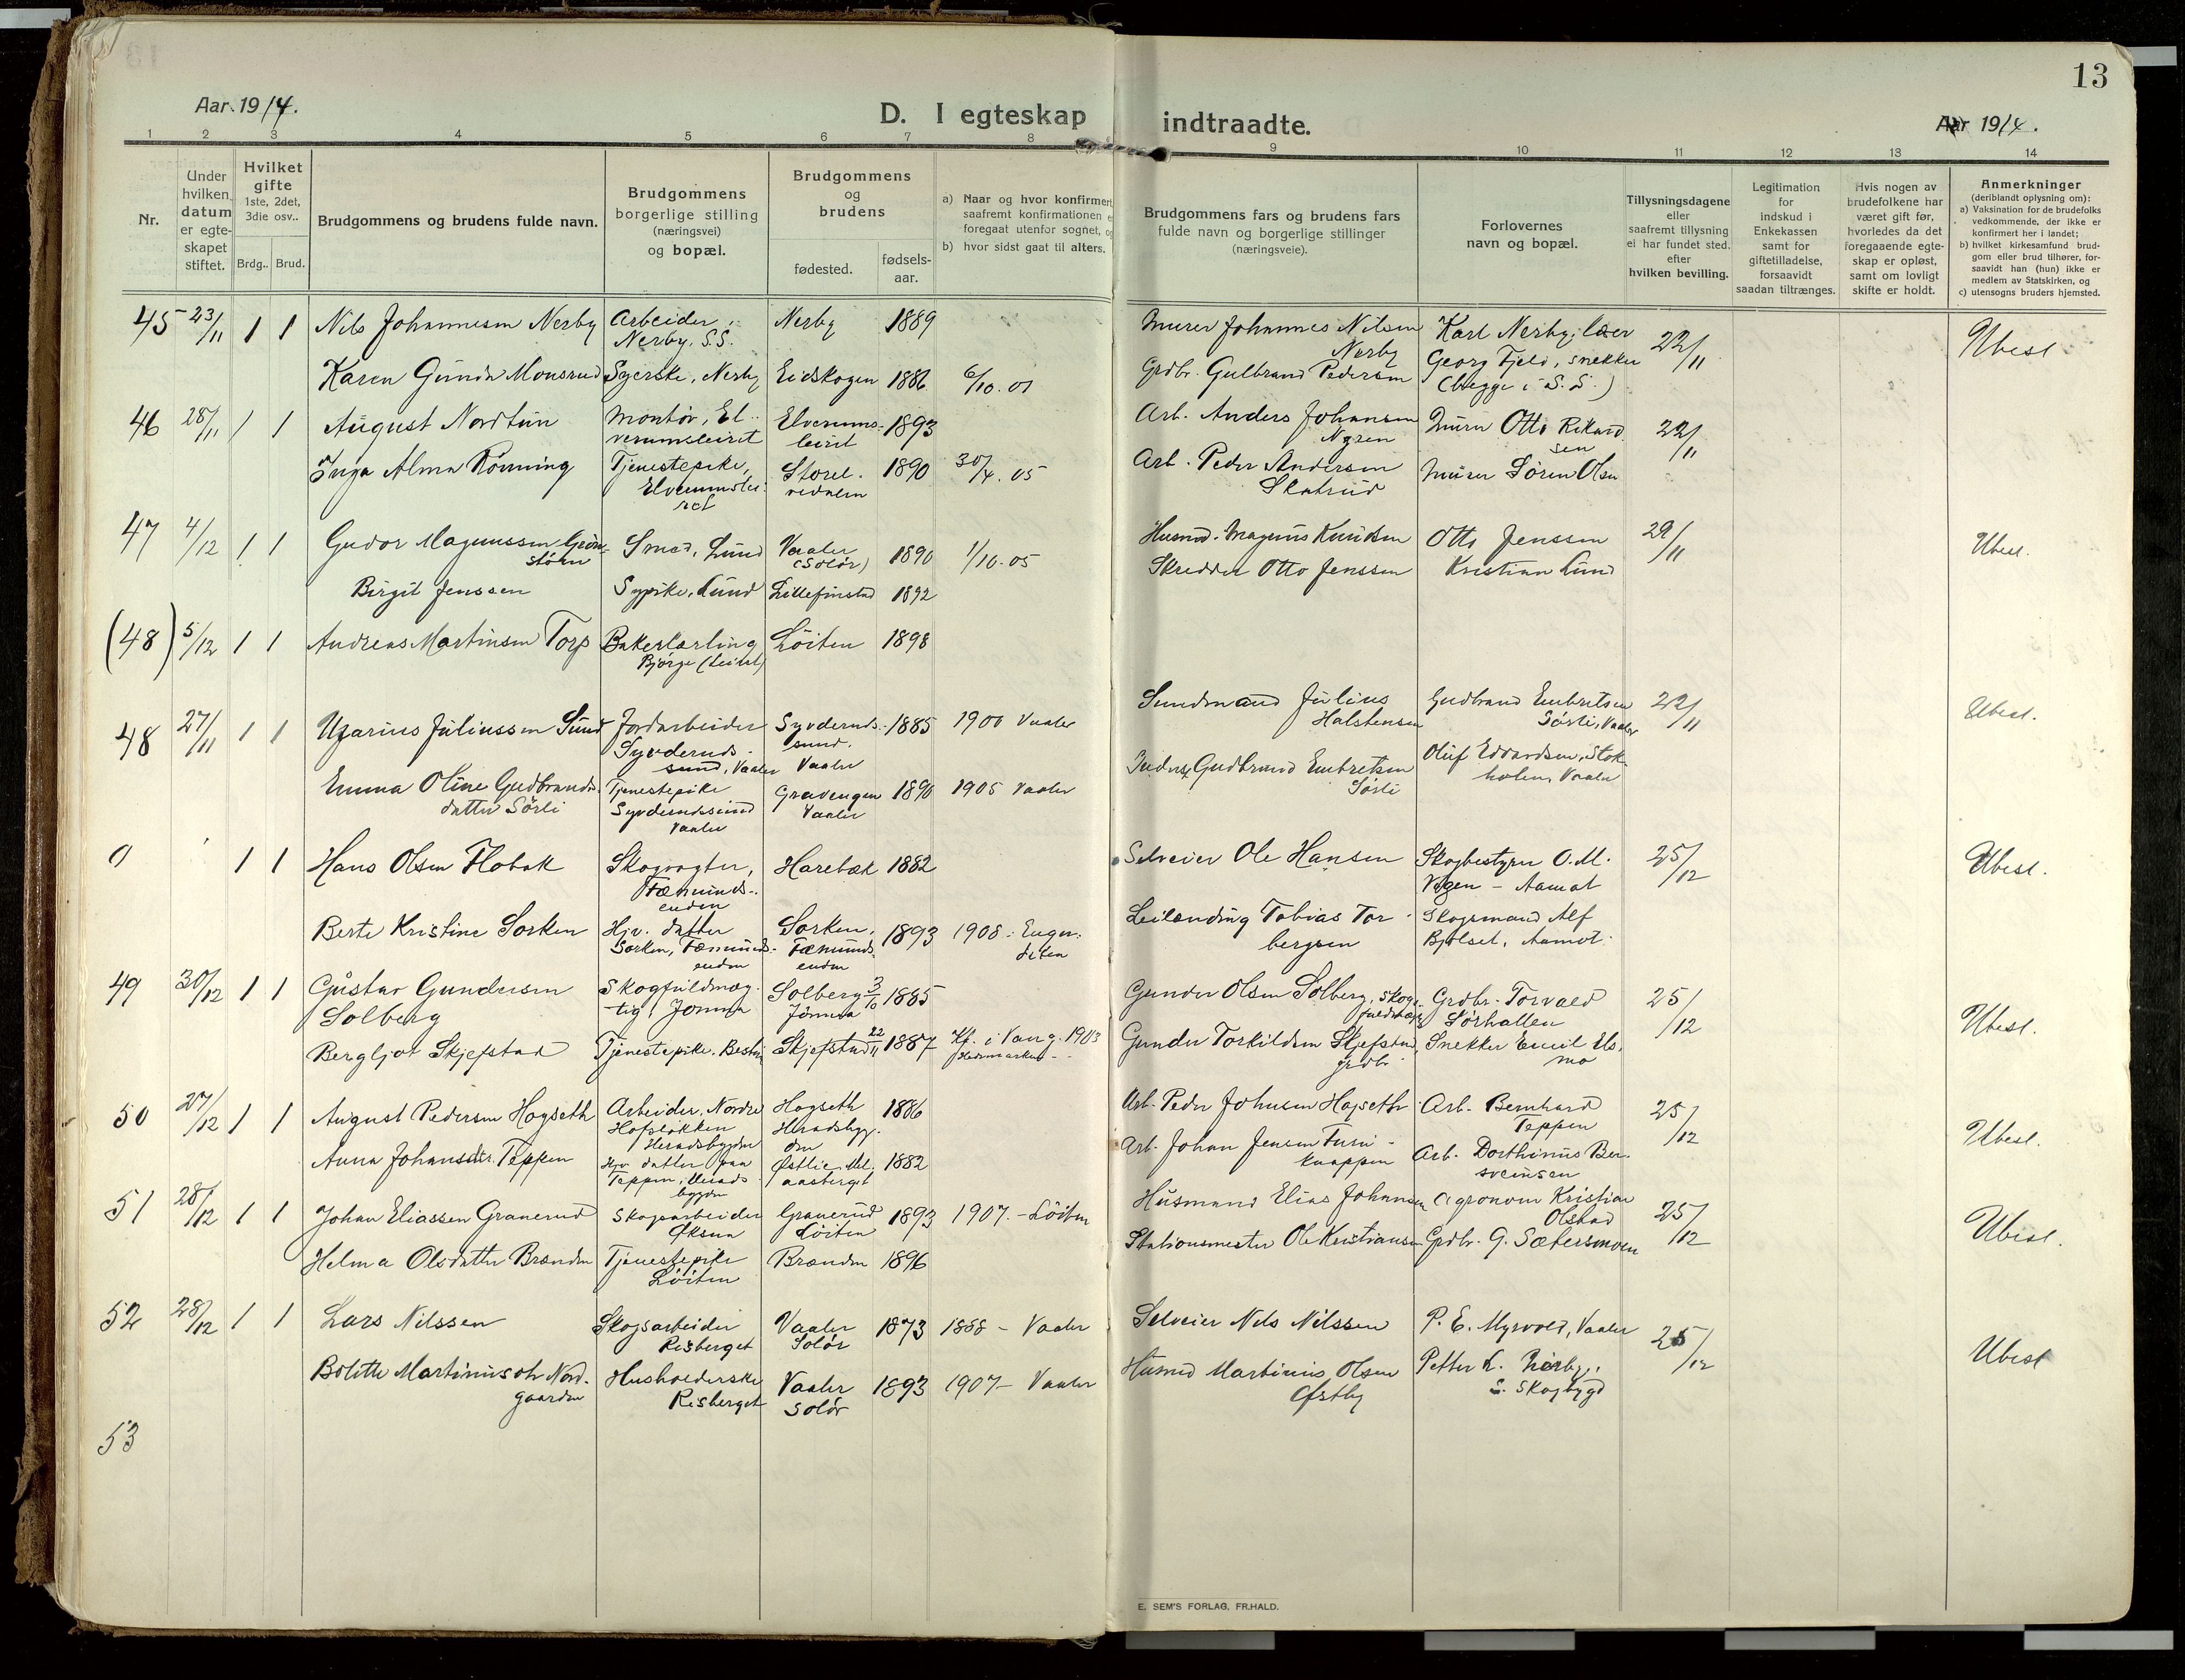 13
Aar 1914.
D. I egteskap indtraadte.
Aar 1914.
1 2 3 4 5 6 7 8 9 10 11 12 13 14
Nr.
Under hvilken datum er egteskapet stiftet.
Hvilket gifte 1ste, 2det, 3die osv..
Brdg.. Brud.
Brudgommens og brudens fulde navn.
Brudgommens borgerlige stilling (næringsvei) og bopæl.
Brudgommens og brudens
fødested.
fødsels-aar.
a) Naar og hvor konfirmert
saafremt konfirmationen
foregaat utenfor sognet,
b) hvor sidst gaat til alters.
Brudgommens fars og brudens fars
fulde navn og borgerlige stillinger
(næringsveie).
Forlovernes
navn og bopæl.
Tillysningsdagene
eller
saafremt tillysning
ei har fundet sted,
efter
hvilken bevilling.
Legitimation
for
indskud i
Enkekassen
samt for
giftetilladelse,
forsaavidt
saadan tiltrænges.
Hvis nogen av
brudefolkene har
været gift før,
hvorledes da det
foregaaende egte-
skap er opløst,
samt om lovligt
skifte er holdt.
Anmerkninger
(deriblandt oplysning om):
a) Vaksination for de brudefolks
vedkommende, der ikke er
konfirmert her i landet;
b) hvilket kirkesamfund brud-
gom eller brud tilhører, for-
saavidt han (hun) ikke er
medlem av Statskirken, og
c) utensogns bruders hjemsted.
45 23/11 1 1 Nils Johannesen Nerby Arbeider, Nerby, S.S. Nerby 1889 Murer Johannes Nilsen Nerby Karl Nerby, 22/11 Ubesl
Karen Gunda Monsrud Syerske, Nerby Eidskogen 1886 6/10.01 Grdbr. Gulbrand Pedersen Georg Fjeld, snekker (begge i S.S.)
46 28/11 1 1 August Nordtun Montør, Elverumsleiret Elverums-leiret 1893 Arb. Anders Johansen Murer Otto Rikardsen 22/11
Inga Alma Rønning Tjenestepike, Elverumsleiret Storel-vedalen 1890 30/4.05 Arb. Peder Andersen Skatrud Murer Søren Olsen
47 4/12 1 1 Gudor Magnussen Smed, Lund Vaaler (Solør) 1890 1/10.05 Husmd. Magnus Knudsen Otto Jenssen 29/11 Ubesl.
Birgit Jenssen Sypike, Lund Lillefinstad 1892 Skredder Otto Jenssen Kristian Lund
(48) 5/12 1 1 Andreas Martinsen Torp Bakerlærling Bjørge (Leiret) Løiten 1898
48 27/11 1 1 Juliussen Sund Jordarbeider Syvderuds-sund, Vaaler Syvderuds-sund. Vaaler 1885 1900 Vaaler Sundmand Julius Halstensen Gudbrand Embretsen Sørli, Vaaler 22/11 Ubesl.
Emma Oline Gudbrands-datter Sørli Tjenestepike Syvderudssund Vaaler Gravengen Vaaler 1890 1905 Vaaler Gudbrand Embretsen Sørli Oluf Edvardsen, Stok-holen, Vaaler
0 1 1 Hans Olsen Flobak Skogvogter, Fæmunds-enden Harebæk 1882 Selveier Ole Hansen Skogbestyrer O. M. Vegen - Aamot 25/12 Ubesl.
Berte Kristine Sorken Hjv. datter Sorken, Fæmunds-enden Sorken, Fæmunds-enden 1893 1908. Leilænding Tobias Torbergsen Skogsmand Alf Bjølset, Aamot.
49 30/12 1 1 Gustav Gundersen Solberg Skogfuldmæg-tig, Jømna Solberg Jømna 3/10 1885 Gunder Olsen Solberg, Skogfuldmægt. Grdbr. Torvald Sørhallen 25/12 Ubesl.
Bergljot Skjefstad Tjenestepike. Skjefstad 22/11 1887 Kf. i Vang. 1903 Hedemarken Gunder Torkildsen Skjefstad, grdbr. Snekker Emil Elsmo
50 27/12 1 1 August Pedersen Hogseth Arbeider, Nordre Hofsløkken Heradsbygden Hogseth Heradsbyg-den 1886 Arb. Peder Johnsen Hogseth Arb. Bernhard Teppen 25/12 Ubesl.
Anna Johansdtr. Teppen Hjv. datter paa Teppen, Herads-bygden Østlie, Melaasberget 1882 Arb. Johan Jensen Furuknappen Arb. Dorthinus Bersveinsen
51 28/12 1 1 Johan Eliassen Granerud Skogsarbeider Øksna Granerud Løiten 1893 1907. - Løiten Husmand Elias Johansen Agronom Kristian Olstad 25/12 Ubesl.
Helma Olsdatter Brænden Tjenestepike Løiten Brænden 1896 Stationsmester Ole Kristiansen Grdbr. G. Sætersmoen
52 28/12 1 1 Lars Nilssen Skogsarbeider Risberget Vaaler Solør 1873 1888 - Vaaler Selveier Nils Nilssen P. E. Myrvold, Vaaler 25/12 Ubesl
Bolette Martinusdtr Nordgaarden Husholderske Risberget Vaaler Solør 1893 1907 - Vaaler Husmd Martinus Olsen Østby Petter L. S. Skogbygd
53
E. SEM'S FORLAG, FR.HALD.